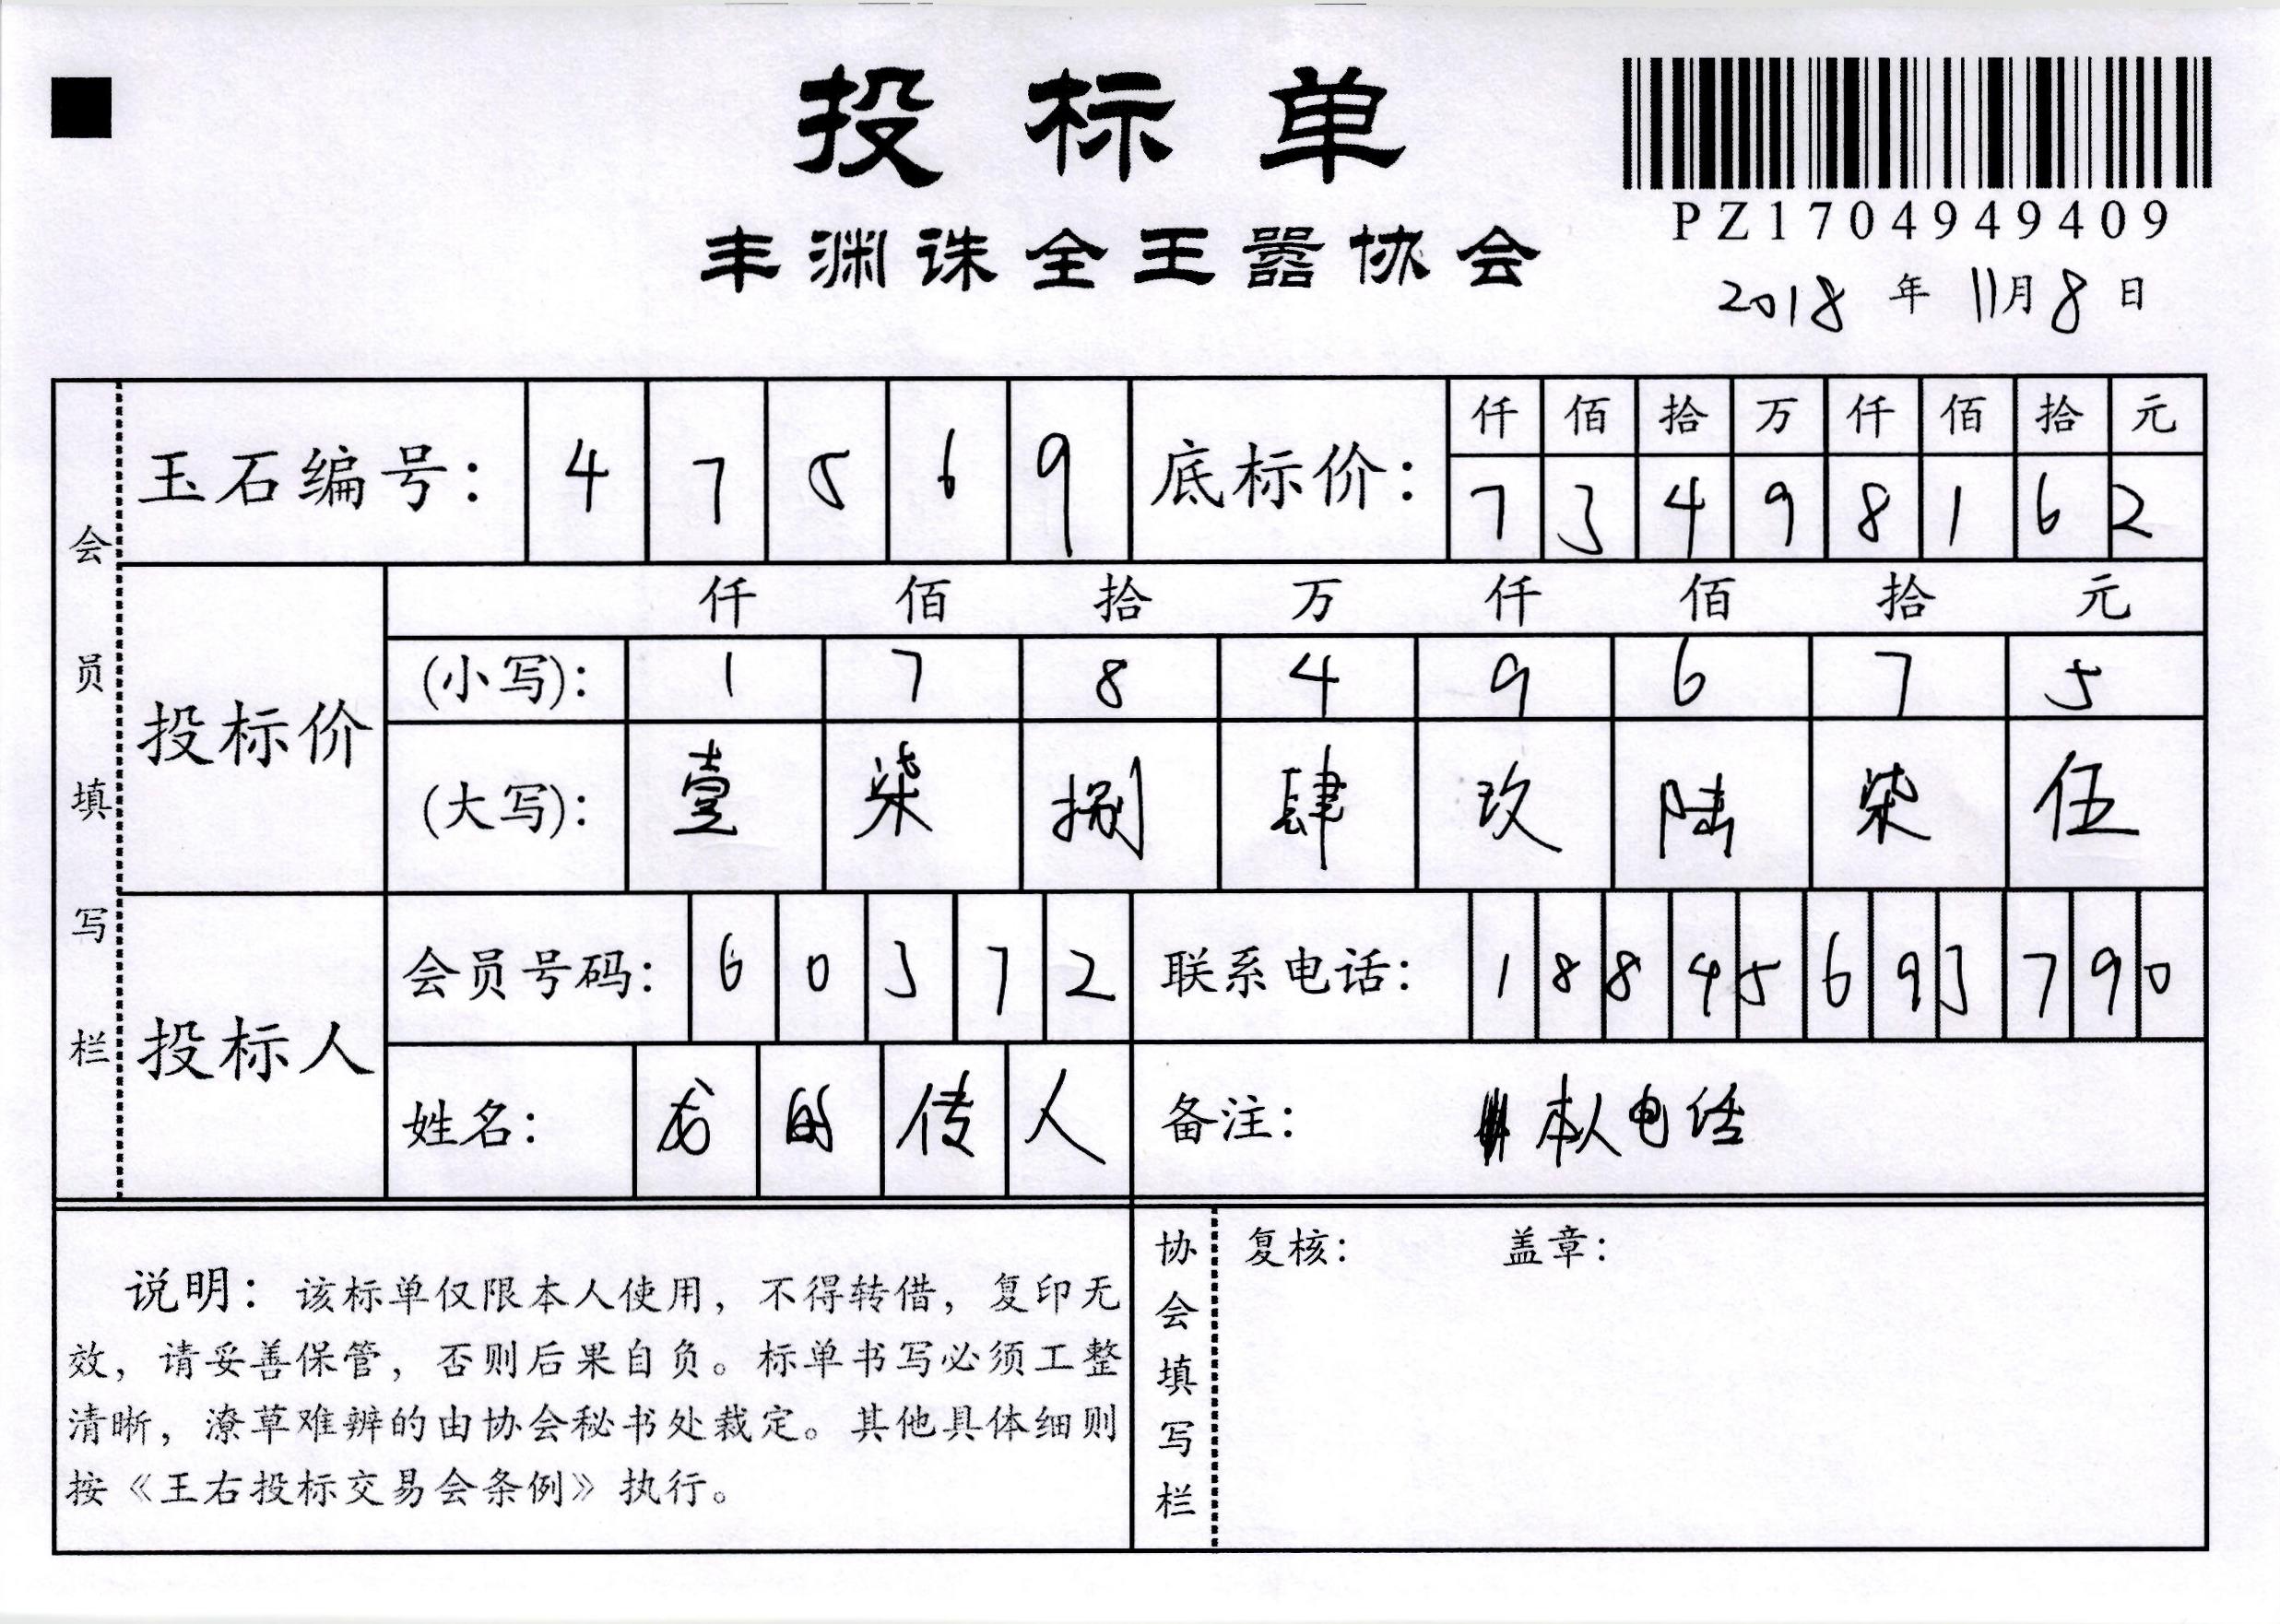 投标单
PZ1704949409
丰渊诛全王嚣协会
2018年11月8日
会员填写栏
玉石编号：47569
底标价：
仟佰拾万仟佰拾元
73498162
投标价
仟佰拾万仟佰拾元
(小写)：17849675
(大写)：壹柒捌肆玖陆柒伍
投标人
会员号码：60372
联系电话：18845693790
姓名：龙的传人
备注：本人电话
说明：该标单仅限本人使用，不得转借，复印无
效，请妥善保管，否则后果自负。标单书写必须工整
清晰，潦草难辨的由协会秘书处裁定。其他具体细则
按《王右投标交易会条例》执行。
协会填写栏
复核：
盖章：